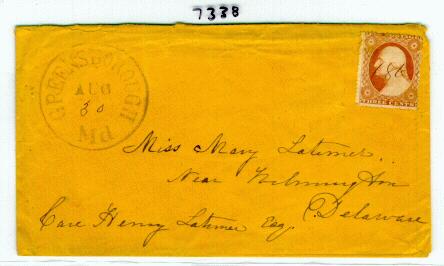 7338
GREENSBOROUGH
AUG
30
Md
THREE CENTS
Miss Mary Latimer
Near Wilmington
Delaware
Care Henry Latimer Esq.